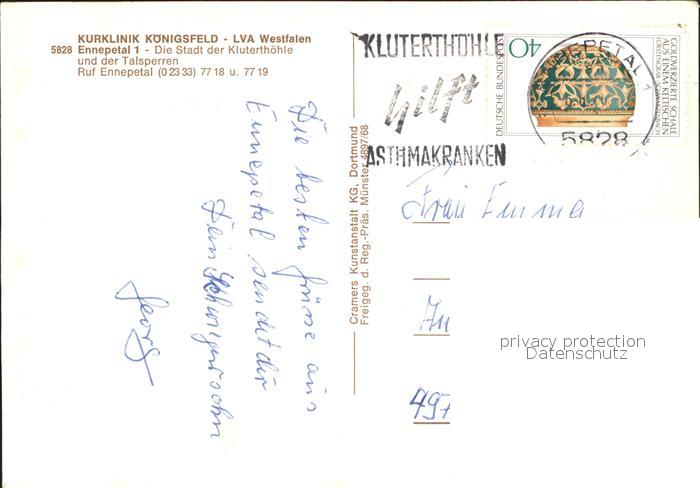 KURKLINIK KÖNIGSFELD - LVA Westfalen
5828 Ennepetal 1 - Die Stadt der Kluterthöhle
und der Talsperren
Ruf Ennepetal (0 23 33) 77 18 u. 77 19
Die besten Grüsse aus
Ennepetal sendet dir
Dein Schwiegersohn
Georg
Cramers Kunstanstalt KG, Dortmund
Freigeg. d. Reg.-Präs. Münster 4897/68
KLUTERTHÖHLE
hilft
ASTHMAKRANKEN
ENNEPETAL 1
5828
DEUTSCHE BUNDESPOST
40
GOLDVERZIERTE SCHALE
AUS EINEM KELTISCHEN
Frau Emma
In
497
privacy protection
Datenschutz